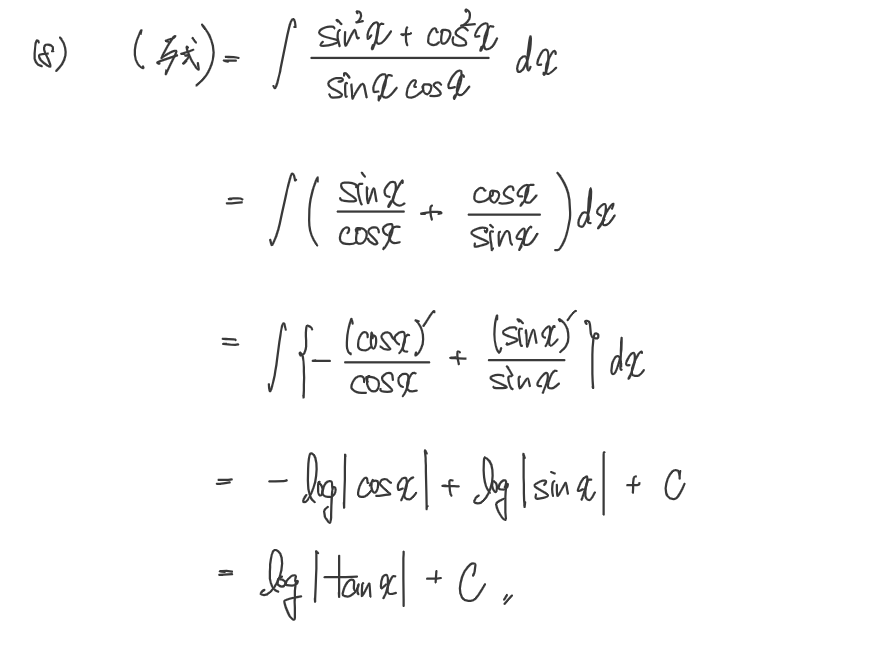 (8) (与式) = ∫ (sin²x + cos²x)/(sinx cosx) dx
= ∫ ( sinx/cosx + cosx/sinx ) dx
= ∫ { - (cosx)′/cosx + (sinx)′/sinx } dx
= - log|cosx| + log|sinx| + C
= log|tanx| + C 〃